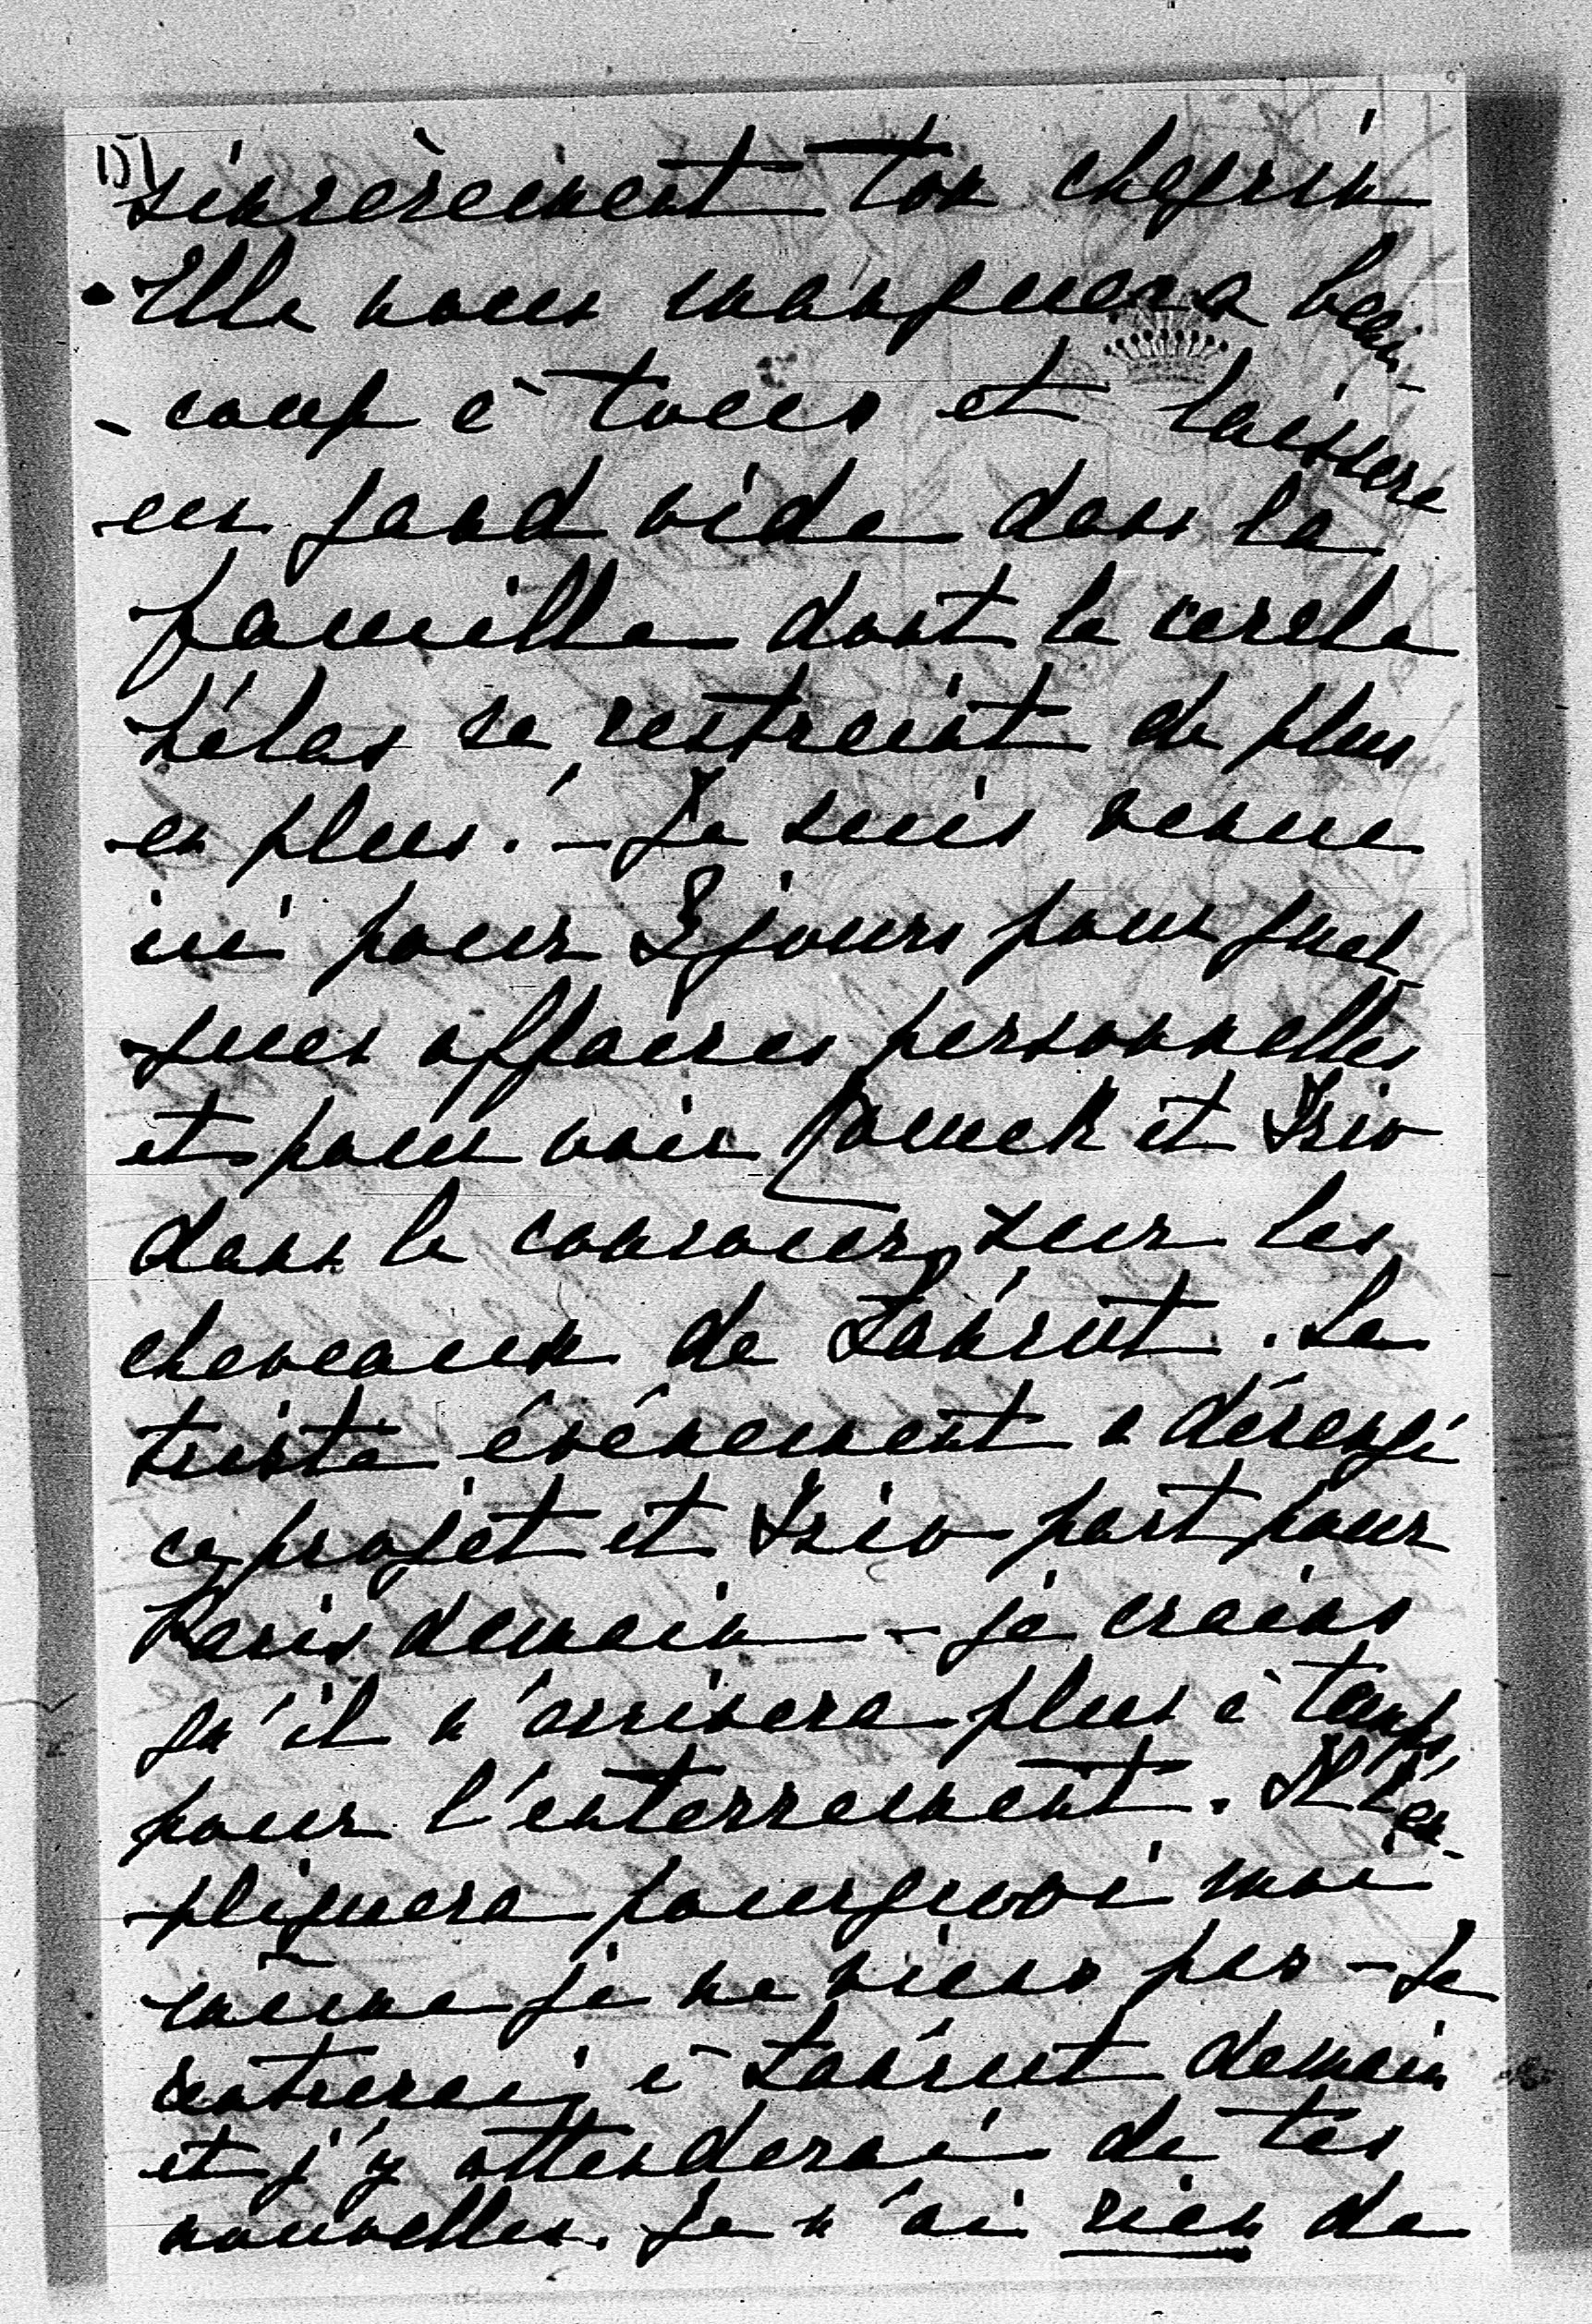 15)
sincèrement ton chagrin
Elle nous manquera beau-
-coup à tous et laissera
un grand vide dans la
famille dont le cercle
hélas se restreint de plus
en plus. – Je suis venue
ici pour 2 jours pour quel-
-ques affaires personnelles
et pour voir et Isio
dans le concours sur les
chevaux de Łańcut. Le
triste événement a dérangé
ce projet et Isio part pour
Paris demain – je crains
qu'il n'arrivera plus à temps
pour l'enterrement. Il t'ex-
-pliquera pourquoi moi
même je ne viens pas – Je
rentrerai à Łańcut demain
et j'y attenderai de tes
nouvelles. Je n'ai rien de